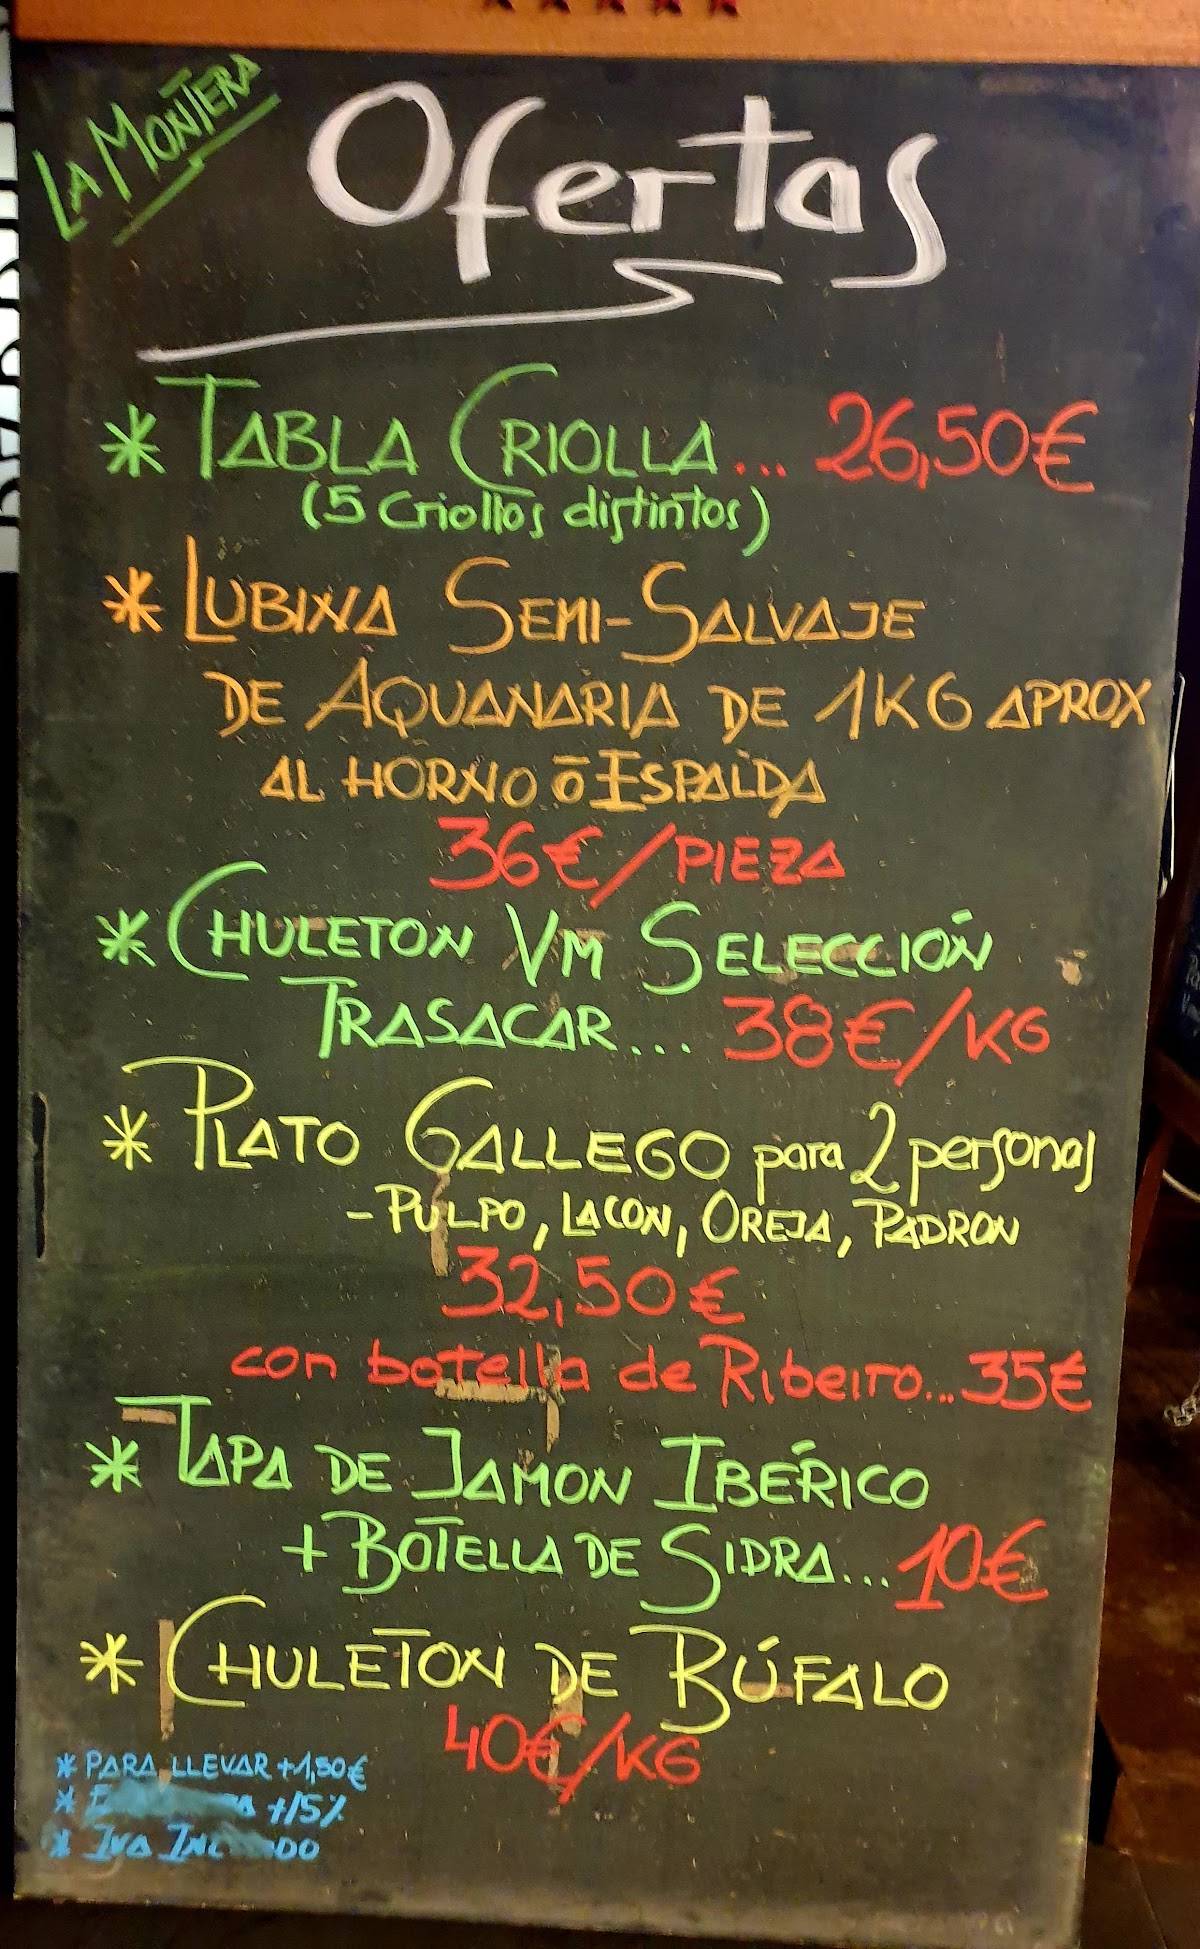 LA MONTERA
Ofertas
* TABLA CRIOLLA... 26,50€
(5 Criollos distintos)
* LUBINA SEMI-SALVAJE
DE AQUANARIA DE 1KG APROX
AL HORNO ó ESPALDA
36€/PIEZA
* CHULETON VM SELECCIÓN
TRASACAR... 38€/KG
* PLATO GALLEGO para 2 personas
- PULPO, LACON, OREJA, PADRON
32,50€
con botella de Ribeiro... 35€
* TAPA DE JAMON IBÉRICO
+ BOTELLA DE SIDRA... 10€
* CHULETON DE BÚFALO
40€/KG
* PARA LLEVAR +1,50€
* +15%
* IVA